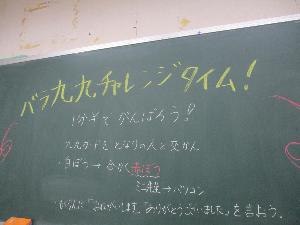 バラ九九チャレンジタイム!
1分半でがんばろう!!
九九カードをとなりの人と交かん
白ぼう→合かく赤ぼう
→パソコン
「おねがいします。」「ありがとうございました。」を言おう。